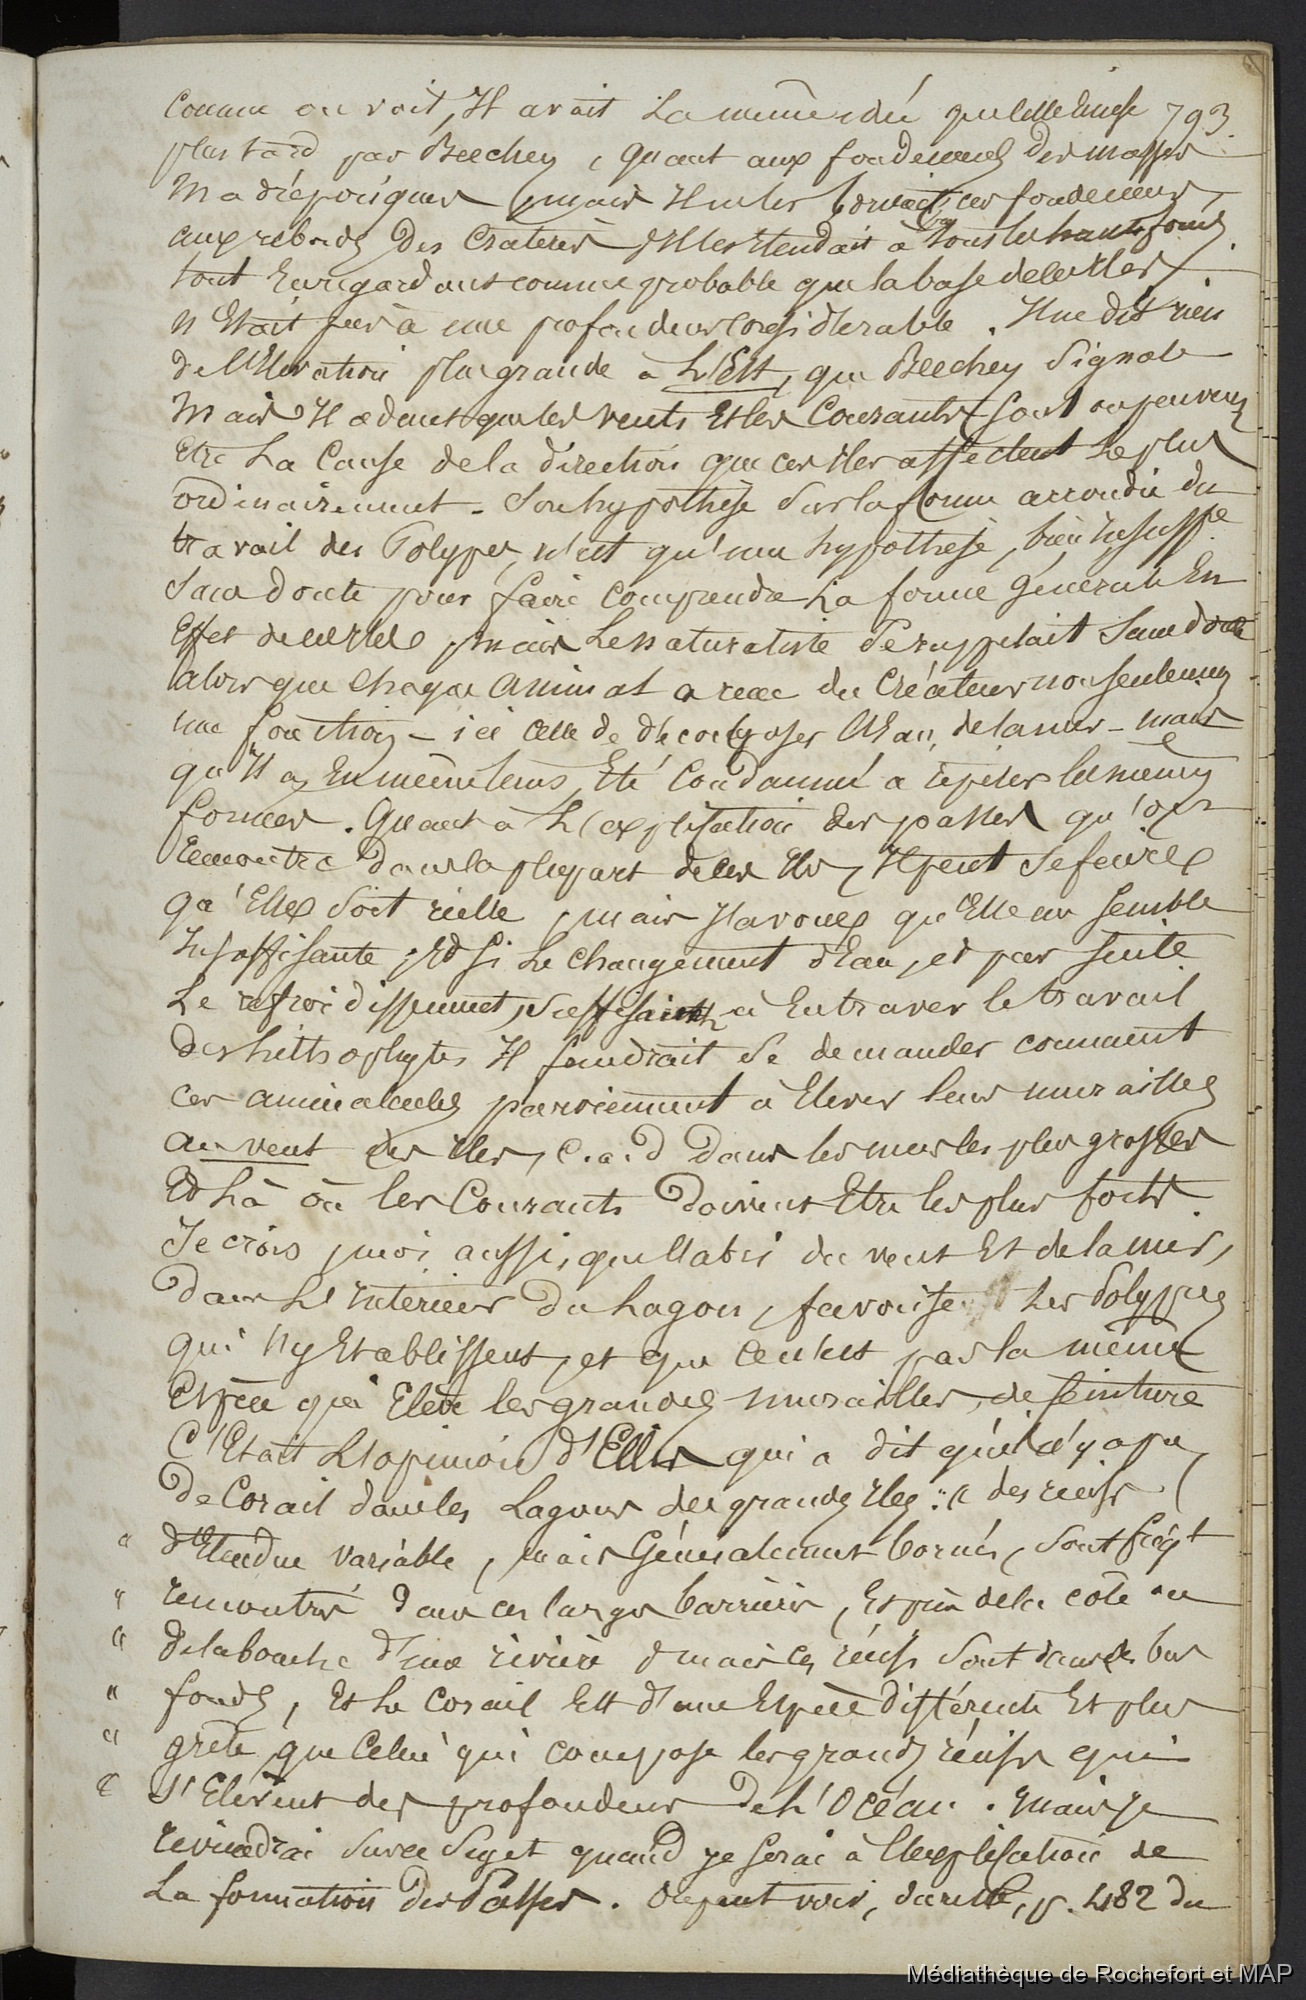 Comme on voit, Il avait La même idée que celle Emise 793.
plus tard par Beechey, Quant aux fondemens Des masses
Madréporiques, mais Il ne les bornait, ces fondemens,
aux rebords Des Cratères, Il les Etendait à tous les hauts fonds,
tout En regardant comme probable que la base de ces Iles
n'Etait pas à une profondeur Considérable. Il ne dit rien
de l'Elévation plus grande à L'Est, que Beechey Signale
Mais Il admet que les vents Et les Courants sont ou peuvent
Etre La Cause de la direction que ces Iles affectent Le plus
ordinairement. Son hypothèse Sur la forme arrondie du
travail des Polypes, n'est qu'une hypothèse, bien
Sans doute pour faire Comprendre La forme Générale En
Effet de ces Iles, mais Le naturaliste Se rappelait Sans doute
alors que Chaque Animal a reçu du Créateur non seulement
une fonction - ici celle de décomposer l'Eau de la mer - mais
qu'Il a, En même tems, Eté Condamné à répéter les mêmes
formes. Quant à L'explication des passes qu'on
rencontre Dans la plupart de ces Iles, Il peut Se faire
qu'Elle Soit réelle, mais J'avoue qu'Elle me Semble
Insuffisante, Et Si Le Changement d'Eau, et par Suite
Le refroidissement, à Entraver le travail
des Lithophytes Il faudrait Se demander comment
ces animalcules parviennent à Elever leurs murailles
au vent des Iles, C.a.d Dans les mers les plus grosses
Et Là où les Courants Doivent Etre les plus forts.
Je crois, moi aussi, que l'abri du vent Et de la mer,
Dans L'Intérieur Du Lagon, favorise Les Polypes
qui S'y Etablissent, et que ce n'est pas la même
Espèce qui Elève les grandes murailles de Ceinture
C'Etait L'opinion d'Ellis qui a dit qu'il n'y a pas
De Corail dans les Lagons des grandes Iles : « des récifs
« d'Etendue variable, mais Généralement bornés, Sont fréqt
« rencontrés Dans ces larges barrières, Et près de la côte ou
« de la bouche d'une rivière, mais ces récifs Sont dans des bas
« fonds, Et Le Corail Est d'une Espèce différente Et plus
« grêle que Celui qui compose les grands récifs qui
« S'Elèvent des profondeurs De L'Océan. Mais Je
reviendrai Sur ce Sujet quand je Serai à l'explication de
La formation Des Passes. On peut voir, du reste, p. 482 du
Médiathèque de Rochefort et MAP